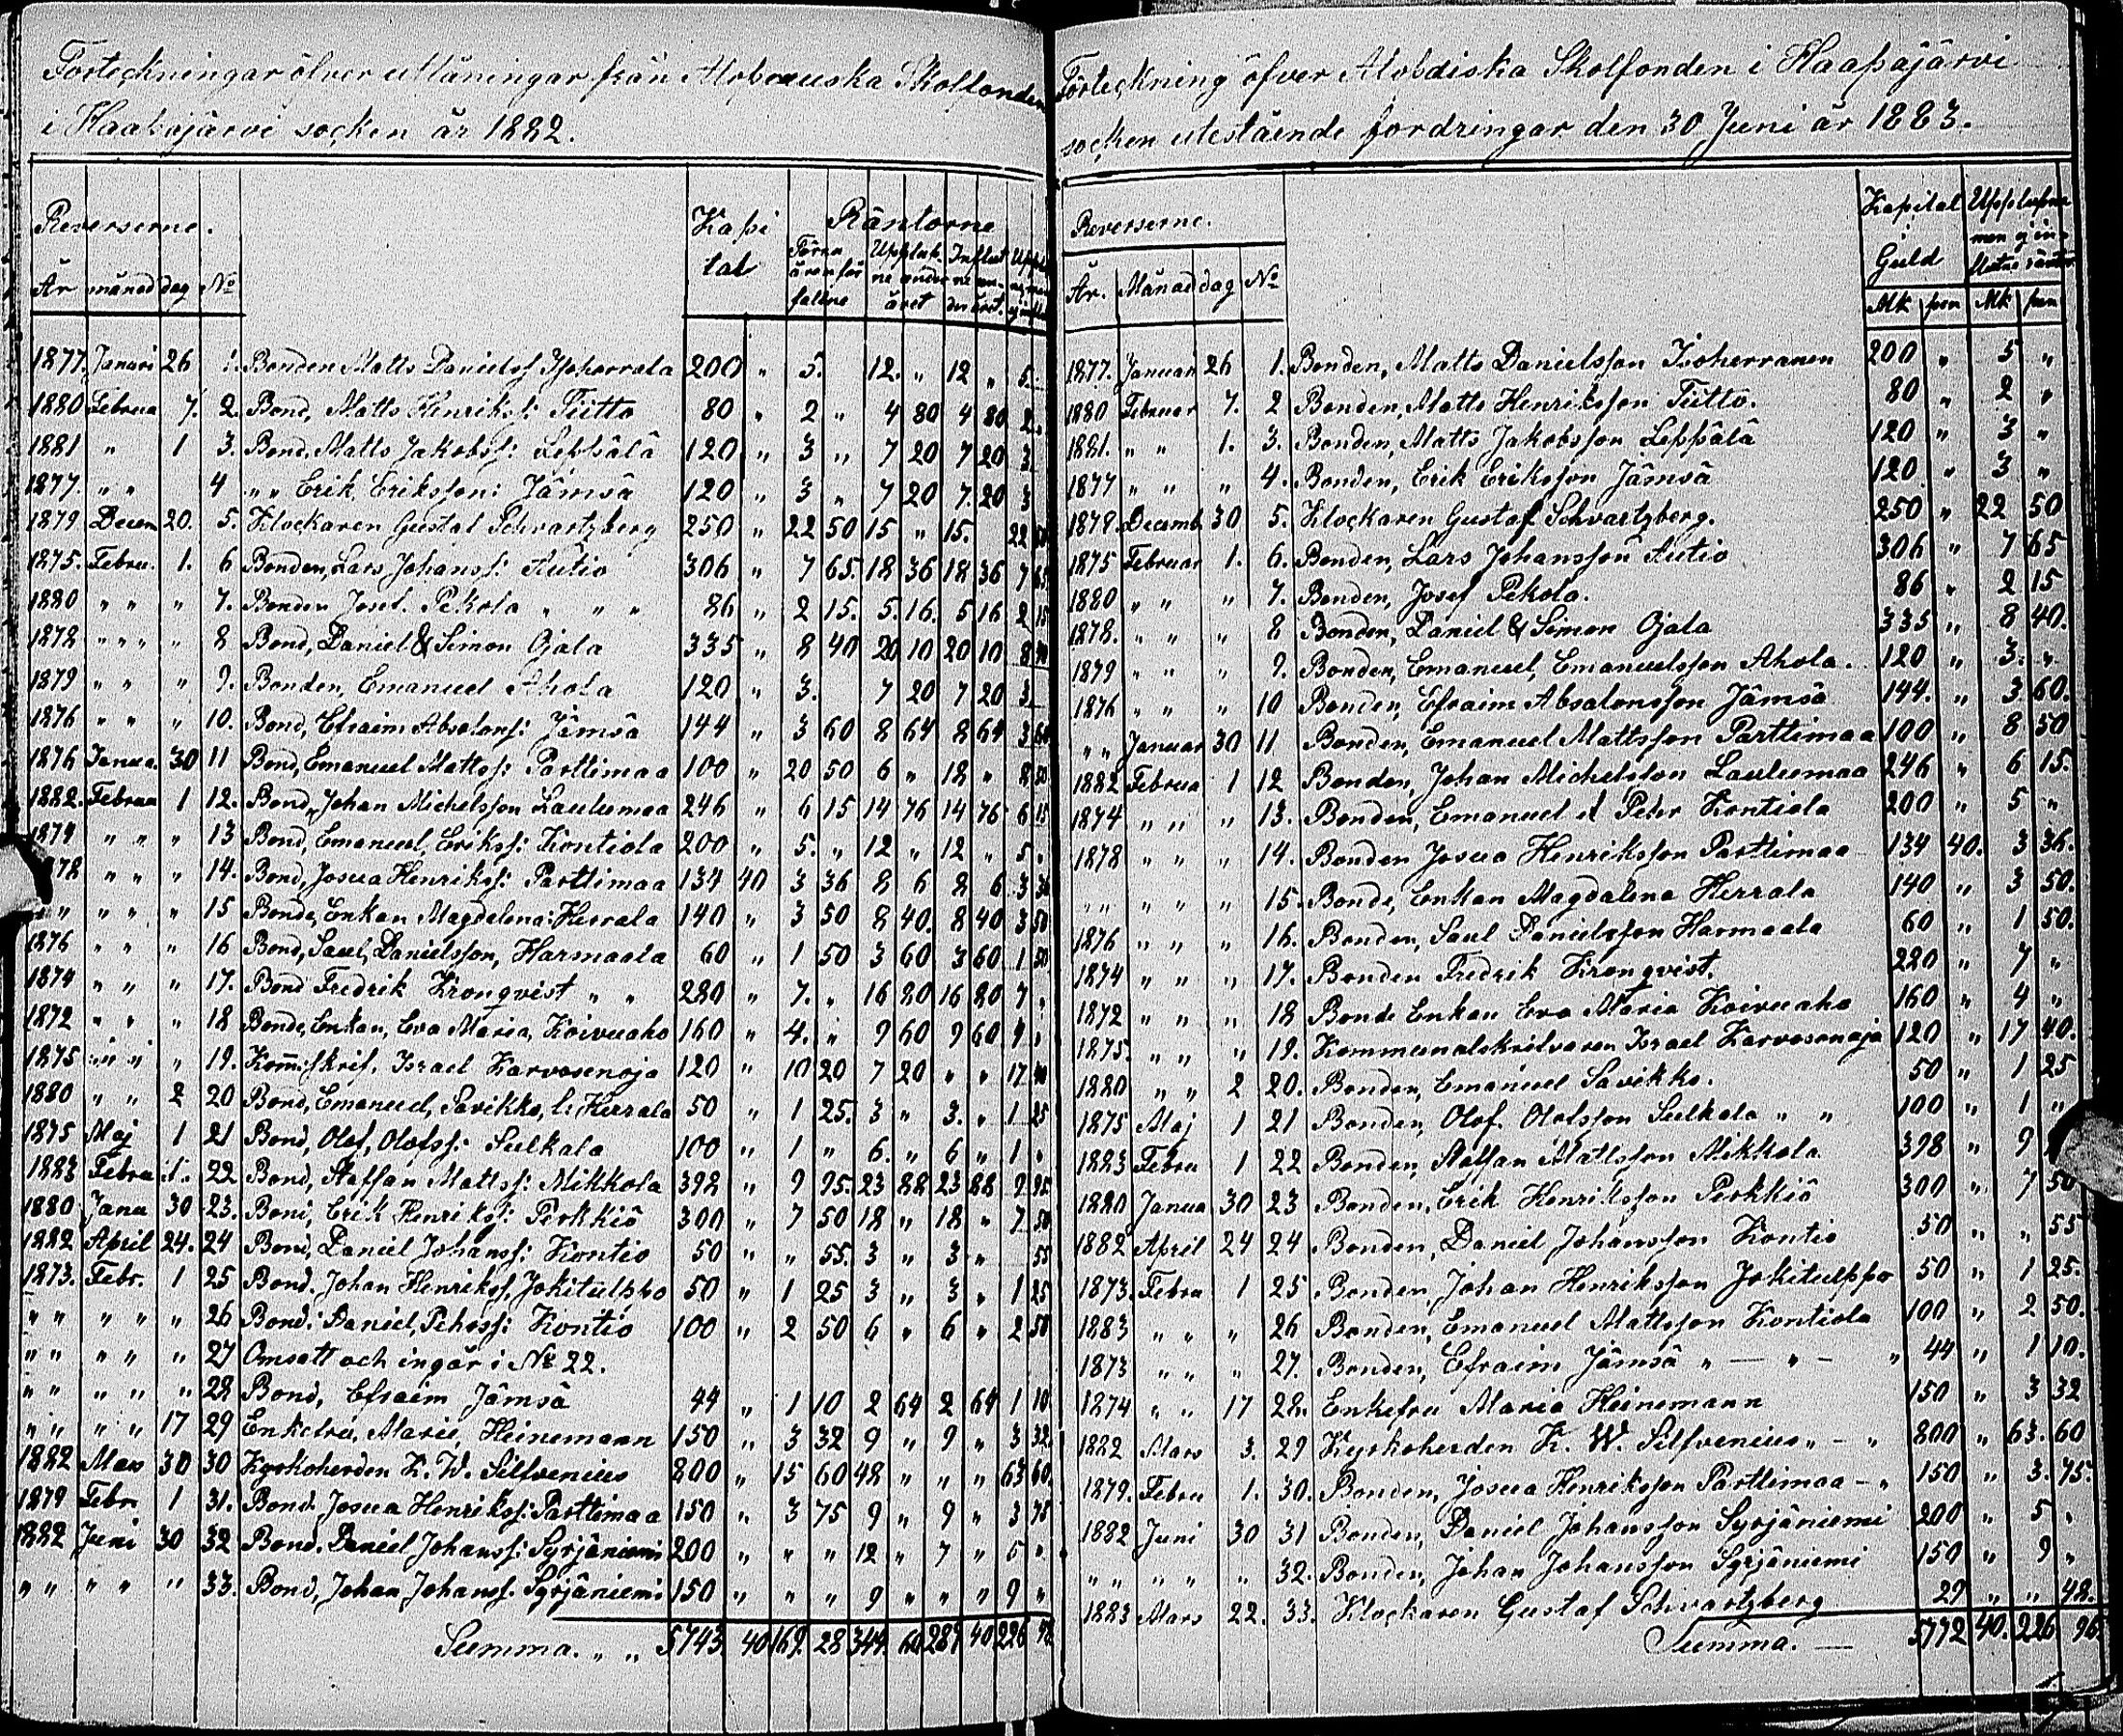 Förteckningar öfver utlåningar från Alopæuska Skolfonden
i Haapajärvi socken år 1882.
Reverserne. Kapital Räntorne
År månad dag No Förra åren förfallne Upplupne under året Influtne under året.
1877. Januari 26 1. Bonden Matts Danielss. Isoherrala 200 " 5. 12. " 12 " 5
1880 Februa 7. 2. Bond, Matts Henrikss: Tiitto 80 " 2 " 4 80 4 80 2
1881 " 1 3. Bond, Matts Jakobss: Leppälä 120 " 3 " 7 20 7 20 3
1877. " " 4 " " Erik Eriksson: Jämsä 120 " 3 " 7 20 7. 20 3
1879 Decem 20. 5. Klockaren Gustaf Schvartzberg 250 " 22 50 15 " 15. 22 50
1875. Febru. 1. 6 Bonden, Lars Johanss: Autio 306 " 7 65. 18 36 18 36 7 65
1880 " " " 7. Bonden Josef. Pekola " " " 86 " 2 15. 5. 16. 5 16 2 15
1878 " " " " 8 Bond, Daniel & Simon Ojala 335 " 8 40 20 10 20 10 8 40
1879 " " " 9. Bonden, Emanuel Ahola 120 " 3. 7 20 7 20 3
1876 " " " 10. Bond, Efraim Absalons: Jämsä 144 " 3 60 8 64 8 64 3 60
1876 Janua. 30 11 Bond, Emanuel Mattss: Parttimaa 100 " 20 50 6 " 18 " 8 50
1882. Februa 1 12. Bond, Johan Michelsson Laulumaa 246 " 6 15 14 76 14 76 6 15
1874 " " " 13 Bond, Emanuel, Erikss: Kontiola 200 " 5. " 12 " 12 " 5 "
1878 " " " 14. Bond, Josua Henrikss: Parttimaa 134 40 3 36 8 6 8 6 3 36
" " " " 15 Bonde, Enkan Magdalena: Herrala 140 " 3 50 8 40. 8 40 3 50
1876 " " " 16 Bond, Saul, Danielsson, Harmaala 60 " 1 50 3 60 3 60 1 50
1874 " " " 17. Bond Fredrik Kronqvist " " 280 " 7. " 16 80 16 80 7 "
1872 " " " 18 Bonde, Enkan, Eva Maria, Koivuaho 160 " 4. " 9 60 9 60 4 "
1875 " " " 19. Kom̄: skrif. Israel Karvosenoja 120 " 10 20 7 20 " " 17 40
1880 " " 2 20 Bond, Emanuel, Savikko, l: Herrala 50 " 1 25. 3 " 3. " 1 25
1875 Maj 1 21 Bond, Olof, Olofss: Sulkala 100 " 1 " 6. " 6 " 1 "
1883 Febru 1. 22 Bond, Staffan Mattss: Mikkola 398 " 9 95. 23 88 23 88 9 95
1880 Janu 30 23. Bond, Erik Henrikss: Perkkiö 300 " 7 50 18 " 18 " 7 50
1882 April 24. 24 Bond, Daniel Johanss: Kontio 50 " " 55. 3 " 3 " 55
1873. Febr. 1 25 Bond. Johan Henrikss, Jokitulppo 50 " 1 25 3 " 3 " 1 25
" " " " " 26 Bond: Daniel, Pehrss: Kontio 100 " 2 50 6 " 6 " 2 50
" " " " " 27 Omsatt och ingår i No 22.
" " " " " 28 Bond, Efraim Jämsä 44 " 1 10 2 64 2 64 1 10
" " " " 17 29 Enkefru, Maria, Heinemann 150 " 3 32 9 " 9 " 3 32
1882 Mars 30 30 Kyrkoherden K. W. Silfvenius 800 " 15 60 48 " " " 63 60
1879 Febr. 1 31. Bond. Josua Henrikss: Parttimaa 150 " 3 75 9 " 9 " 3 75
1882 Juni 30 32 Bond. Daniel Johanss: Syrjäniemi 200 " " " 12 " 7 " 5 "
" " " " " 33. Bond, Johan Johanss: Syrjäniemi 150 " " " 9 " " " 9 "
Summa. " " 5743. 40 169. 28 344. 60 287 40 226 48
Förteckning öfver Alobdiska Skolfonden i Haapajärvi
socken utestående fordringar den 30 Juni år 1883.
Reverserne. Kapital Guld Upplupna men ej influtne räntor
År. Månad dag No Mk pen Mk pen
1877. Januari 26 1. Bonden, Matts Danielsson Isoherranen 200 " 5 "
1880 Februar 7. 2 Bonden, Matts Henriksson Tiitto. 80 " 2 "
1881. " " 1. 3. Bonden, Matts Jakobsson Leppälä 120 " 3 "
1877 " " " 4. Bonden, Erik Eriksson Jämsä 120 " 3 "
1879. Decemb 30 5. Klockaren Gustaf Schvartzberg. 250 " 22 50
1875 Februar 1. 6. Bonden, Lars Johansson Autio 306 " 7 65
1880 " " " 7. Bonden, Josef Pekola. 86 " 2 15
1878. " " " 8 Bonden, Daniel & Simon Ojala 335 " 8 40.
1879 " " " 9. Bonden, Emanuel, Emanuelsson Ahola. 120 " 3. "
1876 " " " 10 Bonden, Efraim Absalonsson Jämsä 144. " 3 60.
" " Januar 30 11 Bonden, Emanuel Mattsson Parttimaa 100 " 8 50
1882 Februa 1 12 Bonden, Johan Michelsson Laulumaa 246 " 6 15.
1874 " " " 13. Bonden, Emanuel & Pehr Kontiola 200 " 5 "
1878 " " " 14. Bonden Josua Henriksson Parttimaa 134 40. 3 36.
" " " " " 15. Bonde, Enkan Magdalena Herrala 140 " 3 50.
1876 " " " 16. Bonden, Saul Danielsson Harmaala 60 " 1 50.
1874 " " " 17. Bonden Fredrik Kronqvist. 280 " 7 "
1872 " " " 18 Bonde Enkan Eva Maria Koivuaho 160 " 4 "
1875. " " " 19. Kommunalskrifvaren Israel Karvosenoja 120 " 17 40.
1880 " " 2 20. Bonden, Emanuel Savikko. 50 " 1 25
1875 Maj 1 21 Bonden, Olof. Olofsson Sulkala " " 100 " 1 "
1883 Febru 1 22 Bonden, Staffan Mattsson Mikkola 398 " 9
1880 Janua 30 23 Bonden, Erik Henriksson Perkkiö 300 " 7 50
1882 April 24 24 Bonden, Daniel Johansson Kontio 50 " " 55
1873. Febru 1 25 Bonden, Johan Henriksson Jokitulppo 50 " 1 25.
1883 " " " 26 Bonden, Emanuel Mattsson Kontiola 100 " 2 50.
1873 " " " 27. Bonden, Efraim Jämsä " — " — " 44 " 1 10.
1874 " " 17 28. Enkefru Maria Heinemann 150 " 3 32
1882 Mars 3. 29 Kyrkoherden K. W. Silfvenius " — " 800 " 63. 60
1879. Febru 1. 30. Bonden, Josua Henriksson Parttimaa — " 150 " 3. 75.
1882 Juni 30 31 Bonden, Daniel Johansson Syrjäniemi 200 " 5 "
" " " " " 32. Bonden, Johan Johansson Syrjäniemi 150 " 9 "
1883 Mars 22. 33. Klockaren Gustaf Schvartzberg 29 " " 48.
Summa. — 5772 40. 226 96.